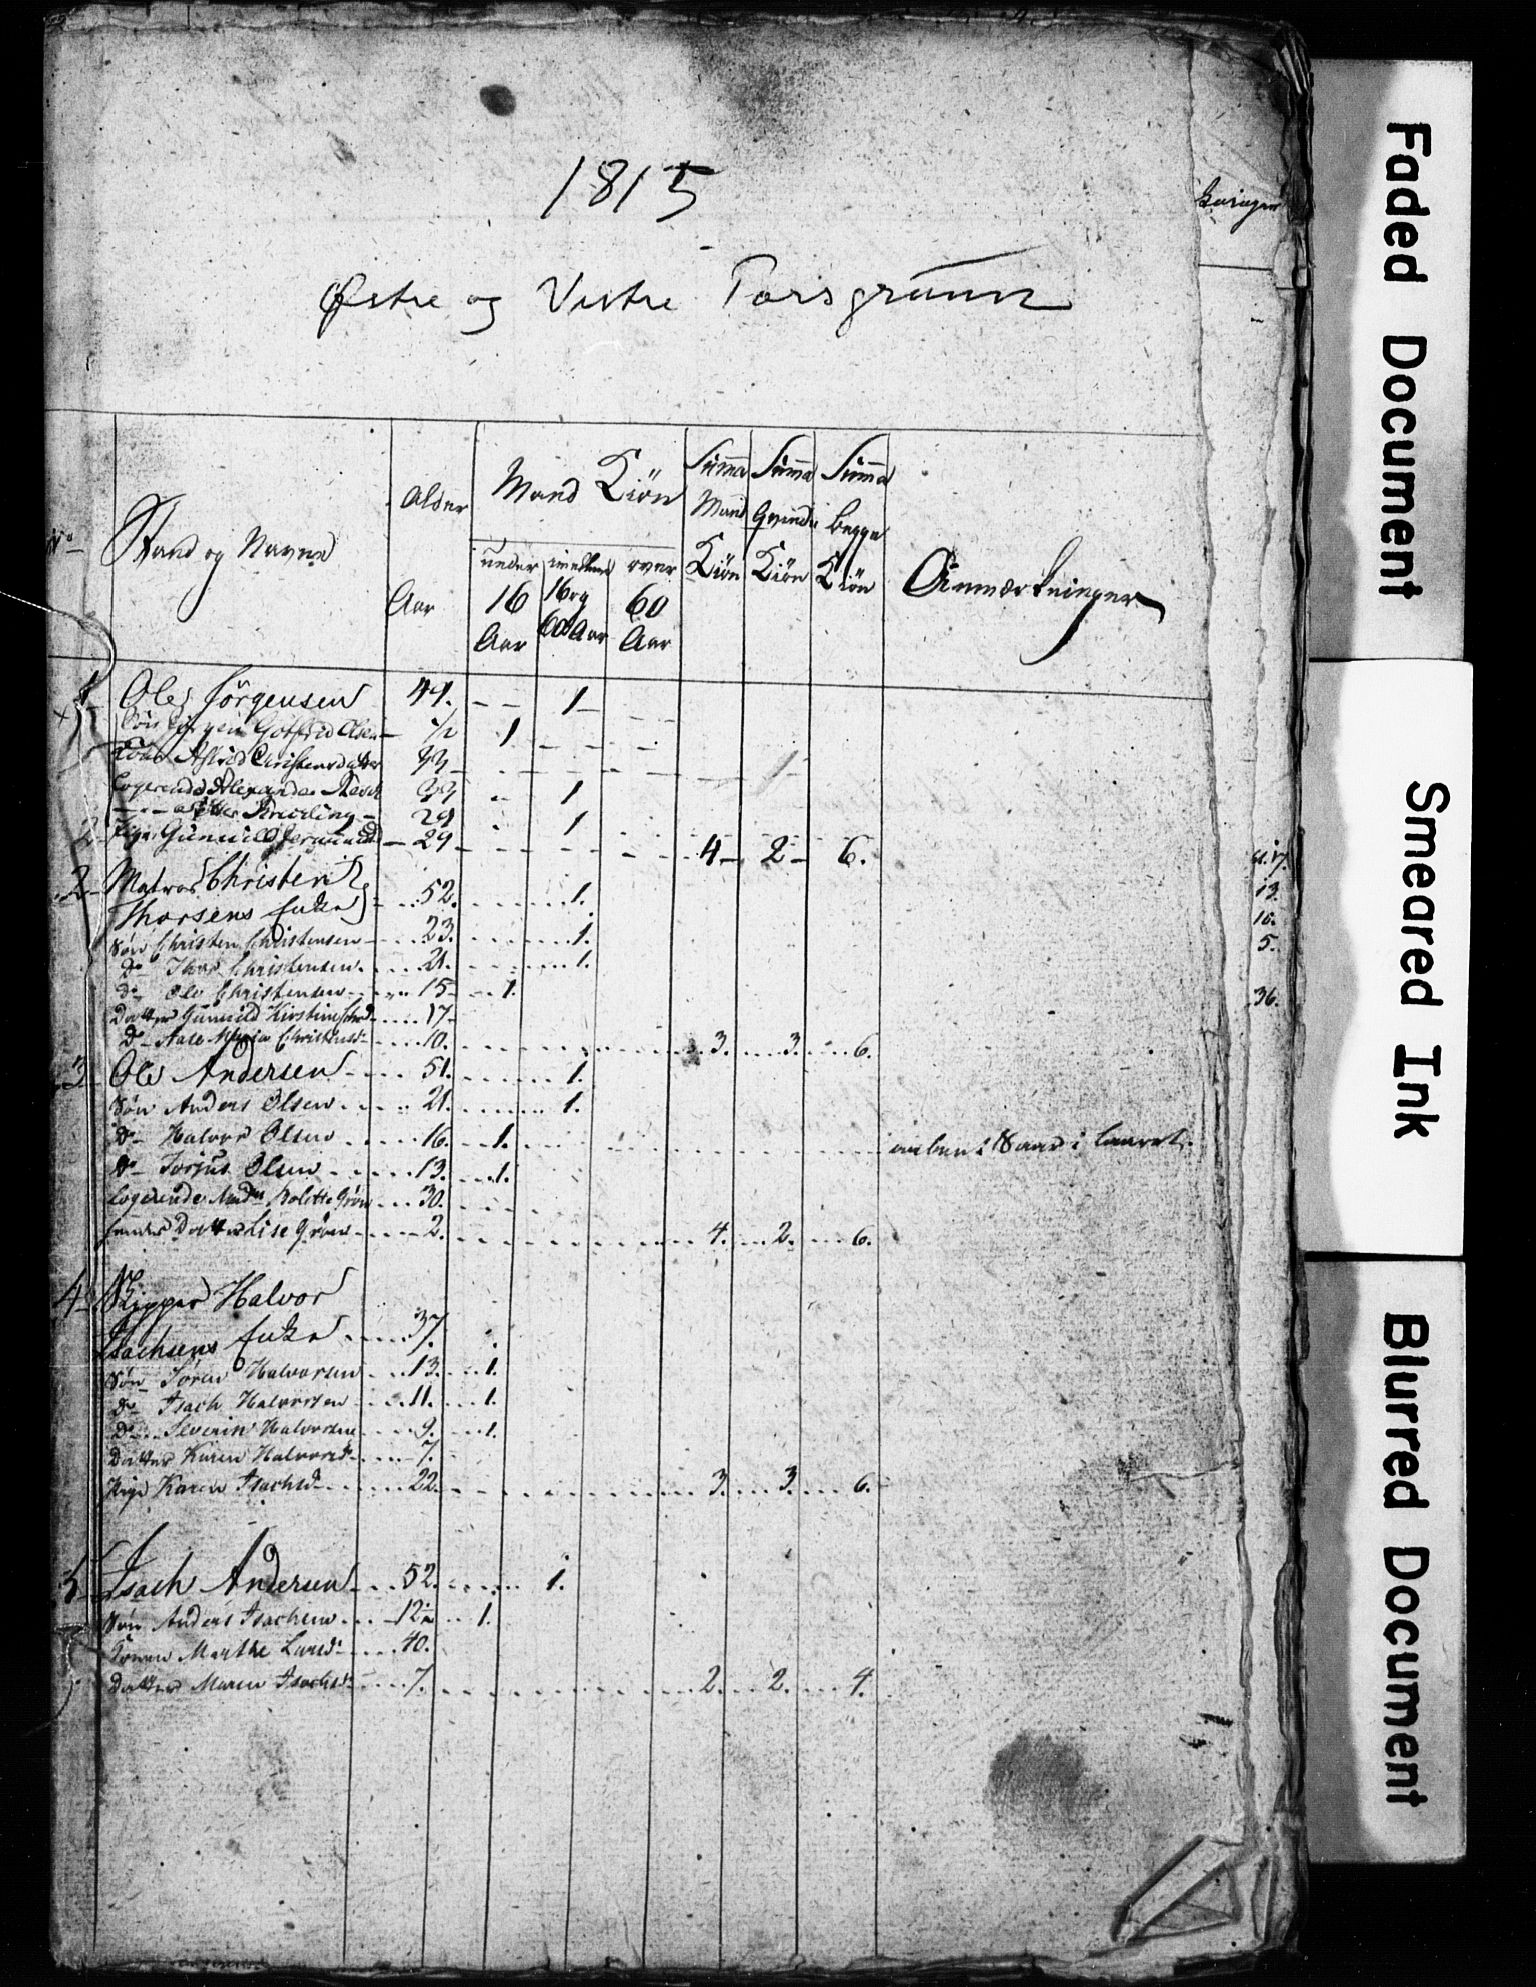 1815
Østre og Vestre Porsgrunn
No Stand og Navne Alder Aar Mand Kiön under 16 Aar imellem 16 og 60 Aar over 60 Aar Summa Mand Kiön Summa Qvinde Kiön Summa begge Kiön Anmærkninger
1 Ole Jörgensen 44. 1
Sön Jörgen Gotfrid Olsen 1/2 1
Kone Astrid Christensdatter 33 1
Logerende Alexander 33 1
29 1
Pige Gunnild 29 4 2 6.
2 Matros Christen
Thorsens Enke 52. 1.
Sön Christen Christensen 23. 1.
Do Thor Christensen 21. 1.
Do Ole Christensen 15 1.
Datter Gunnild Kirstine 17
Do Aase Maria Christensd 10. 3. 3. 6.
3 Ole Andersen 51. 1.
Sön Anders Olsen 21. 1.
Do Halvor Olsen 16. 1. i 8 aar i
Do Torjus Olsen 13. 1.
Logerende Mad. Bolette Grön 30.
hendes Datter Lise Grön 2. 4. 2. 6.
4 Skipper Halvor
Isachsens Enke 37.
Sön Sören Halvorsen 13. 1.
Do Isach Halvorsen 11. 1.
Do Severin Halvorsen 9. 1.
Datter Karen Halvorsd 7.
Pige Karen Isachsd 22. 3. 3. 6.
5 Isach Andersen 52. 1.
Sön Anders Isachsen 12 1.
Konen Marthe Larsd 40.
Datter Maren Isachsd 7. 2. 2. 4.
13.
10.
5.
36.
Faded Document
Smeared Ink
Blurred Document